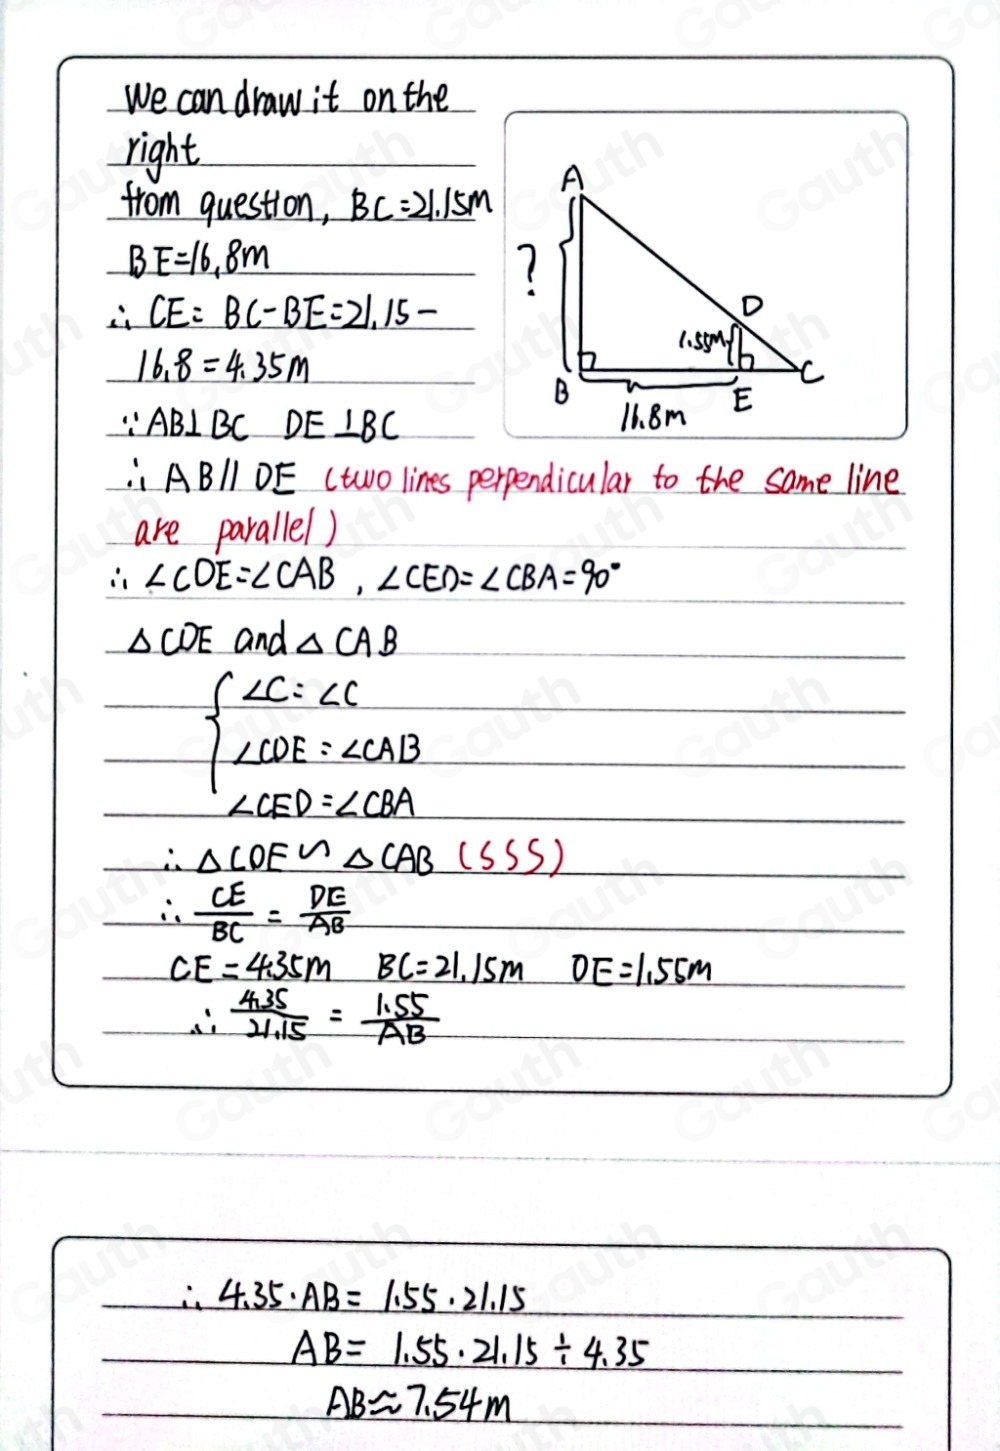 We can draw it on the
right
from question, BC=21.15m
BE=16.8m
∴ CE= BC-BE=21.15-
16.8=4.35m
∵AB⊥BC DE⊥BC
∴ AB// DE (two lines perpendicular to the same line
are parallel)
∴ ∠CDE=∠CAB, ∠CED=∠CBA=90°
△CDE and △CAB
∠C=∠C
∠CDE=∠CAB
∠CED=∠CBA
∴ △CDE∽△CAB (SSS)
∴ CE/BC = DE/AB
CE=4.35m BC=21.15m DE=1.55m
∴ 4.35/21.15 = 1.55/AB
A
?
D
1.55m
B
E
C
16.8m
∴ 4.35·AB= 1.55·21.15
AB= 1.55·21.15÷4.35
AB≈7.54m
Gauth